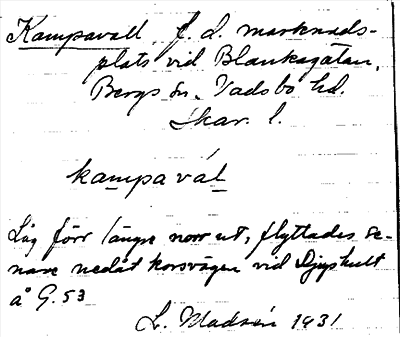 Kampavall f. d. marknads-
plats vid Blankagatan,
Bergs sn. Vadsbo hd.
Skar. l.
kampavál
Låg förr längre norr ut, flyttades se-
nare nedåt korsvägen vid Djuphult
å G. 53
L. Madsén 1931